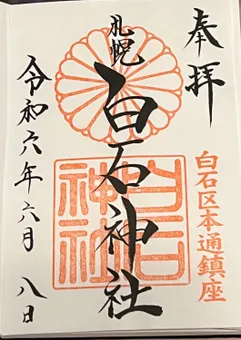 奉拝
白石区本通鎮座
札幌
白石神社
白石神社
令和六年六月八日